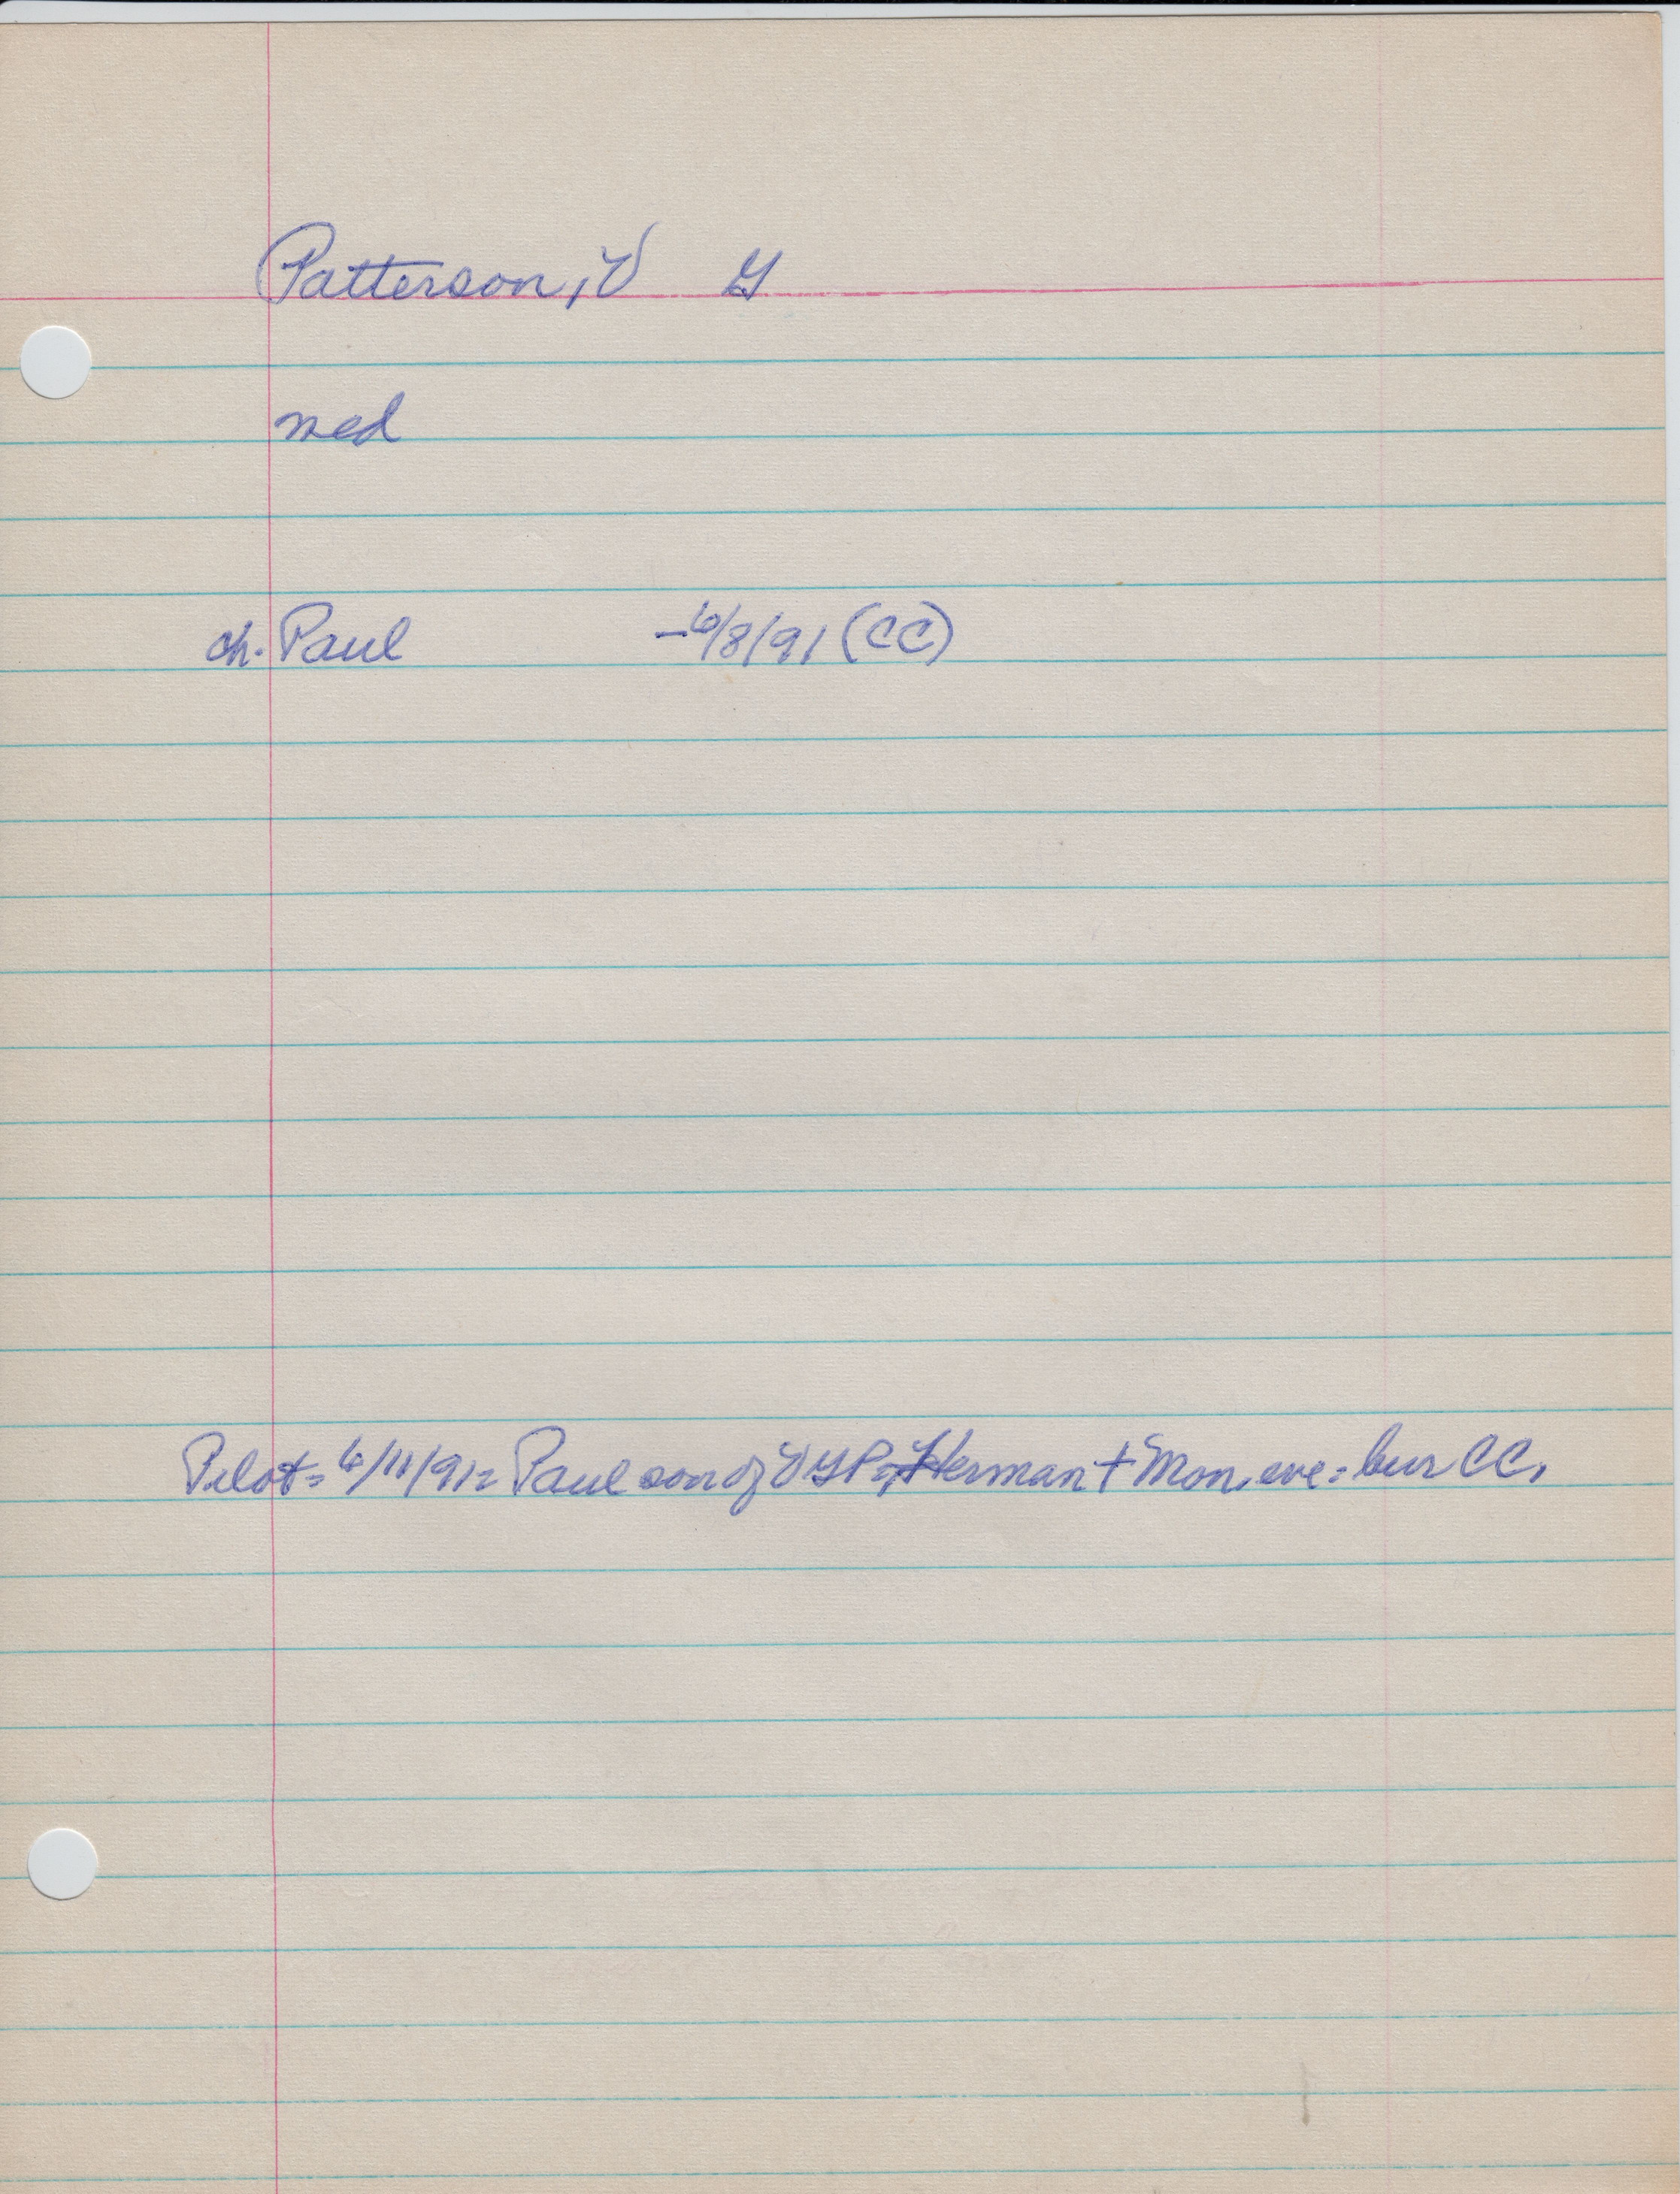 Patterson, V G
med
ch. Paul -6/8/91 (CC)
Pilot = 6/11/91 = Paul son of V G P = Herman + Mon. eve = bur CC.